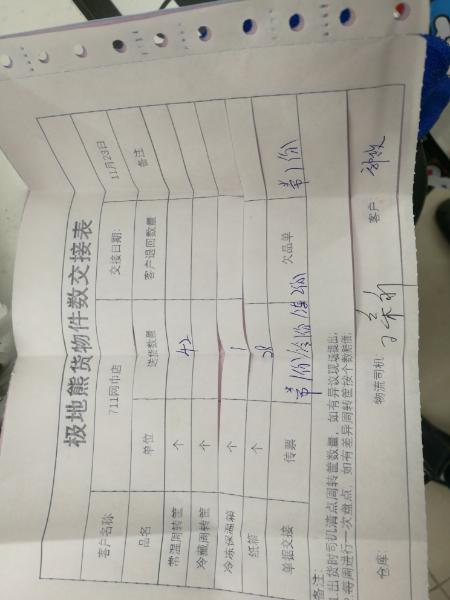 极地熊货物件数交接表
客户名称 711网巾店 交接日期: 11月23日
品名 单位 送货数量 客户退回数量 备注
常温周转筐 个 42
冷藏周转筐 个
冷冻保温箱 个 1
纸箱 个 28
单据交接 传票 常1份 欠品单 常1份
备注:
1.出货时司机清点周转筐数量,如有异议现场提出;
2.每周进行一次盘点,如有差异周转筐按个数赔偿;
仓库: 物流司机: 客户: